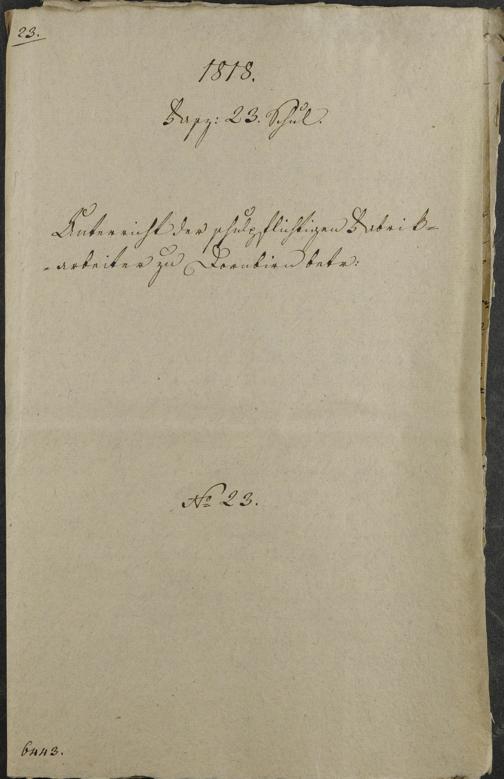 23.
1818.
Fasz: 23. Schul.
Unterricht der schulpflichtigen Fabrik-
-arbeiter zu Dornbirn betr:
No 23.
6443.